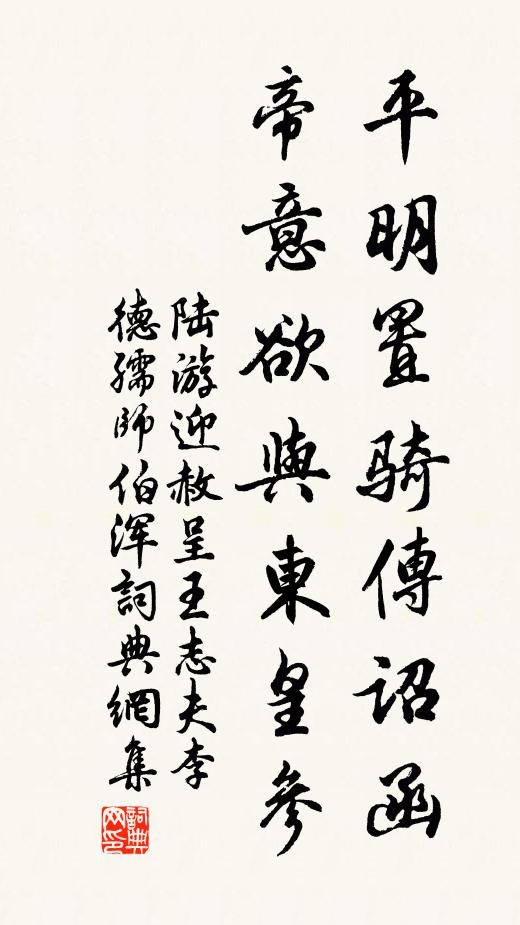 平明置骑傳詔函
帝意欲與東皇參
陆游迎赦呈王志夫李
德孺师伯浑詞典網集
詞典网印